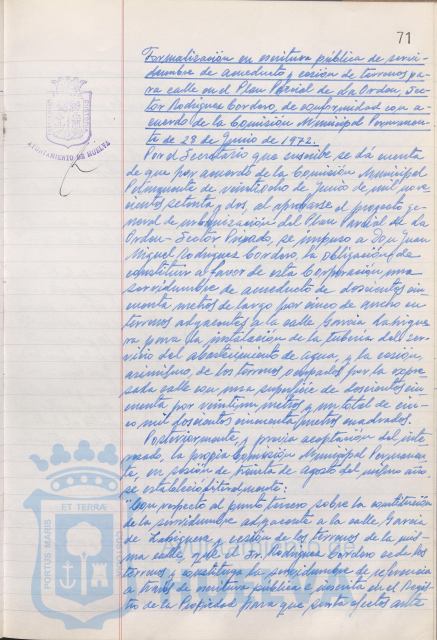 71
Formalización en escritura pública de servi-
dumbre de acueducto y cesión de terrenos pa-
ra calle en el Plan Parcial de La Orden, Sec-
tor Rodríguez Cordero, de conformidad con a-
cuerdo de la Comisión Municipal Permanen-
te de 28 de Junio de 1972.
AYUNTAMIENTO DE HUELVA
Por el Secretario que suscribe, se dá cuenta
de que por acuerdo de la Comisión Municipal
Permanente de veintiocho de Junio de mil nove-
cientos setenta y dos, al aprobarse el proyecto ge-
neral de urbanización del Plan Parcial de La
Orden- Sector Privado, se impuso a Don Juan
Miguel Rodríguez Cordero, la obligación de
constituir al favor de esta Corporación una
servidumbre de acueducto de doscientos cin-
cuenta metros de largo por cinco de ancho en
terrenos adyacentes a la calle García Labigue-
ra para la instalación de la tubería del ser-
vicio del abastecimiento de agua, y la cesión,
asimismo, de los terrenos ocupados por la expre-
sada calle con una superficie de doscientos cin-
cuenta por veintiun metros y un total de cin-
co mil doscientos cincuenta metros cuadrados.
Posteriormente, y previa aceptación del inte-
resado, la propia Comisión Municipal Permanen-
te, en sesión de treinta de agosto del mismo año
se estableció literalmente:
"Con respecto al punto tercero, sobre la constitución
de la servidumbre adyacente a la calle García
de Labiguera y cesión de los terrenos de la mis-
ma calle, que el Sr. Rodríguez Cordero cede los
terrenos y constituya la servidumbre de referencia
a través de escritura pública e inscrita en el Regis-
tro de la Propiedad para que surta efectos ante
PORTUS MARIS
ET TERRAE
CUSTODIA